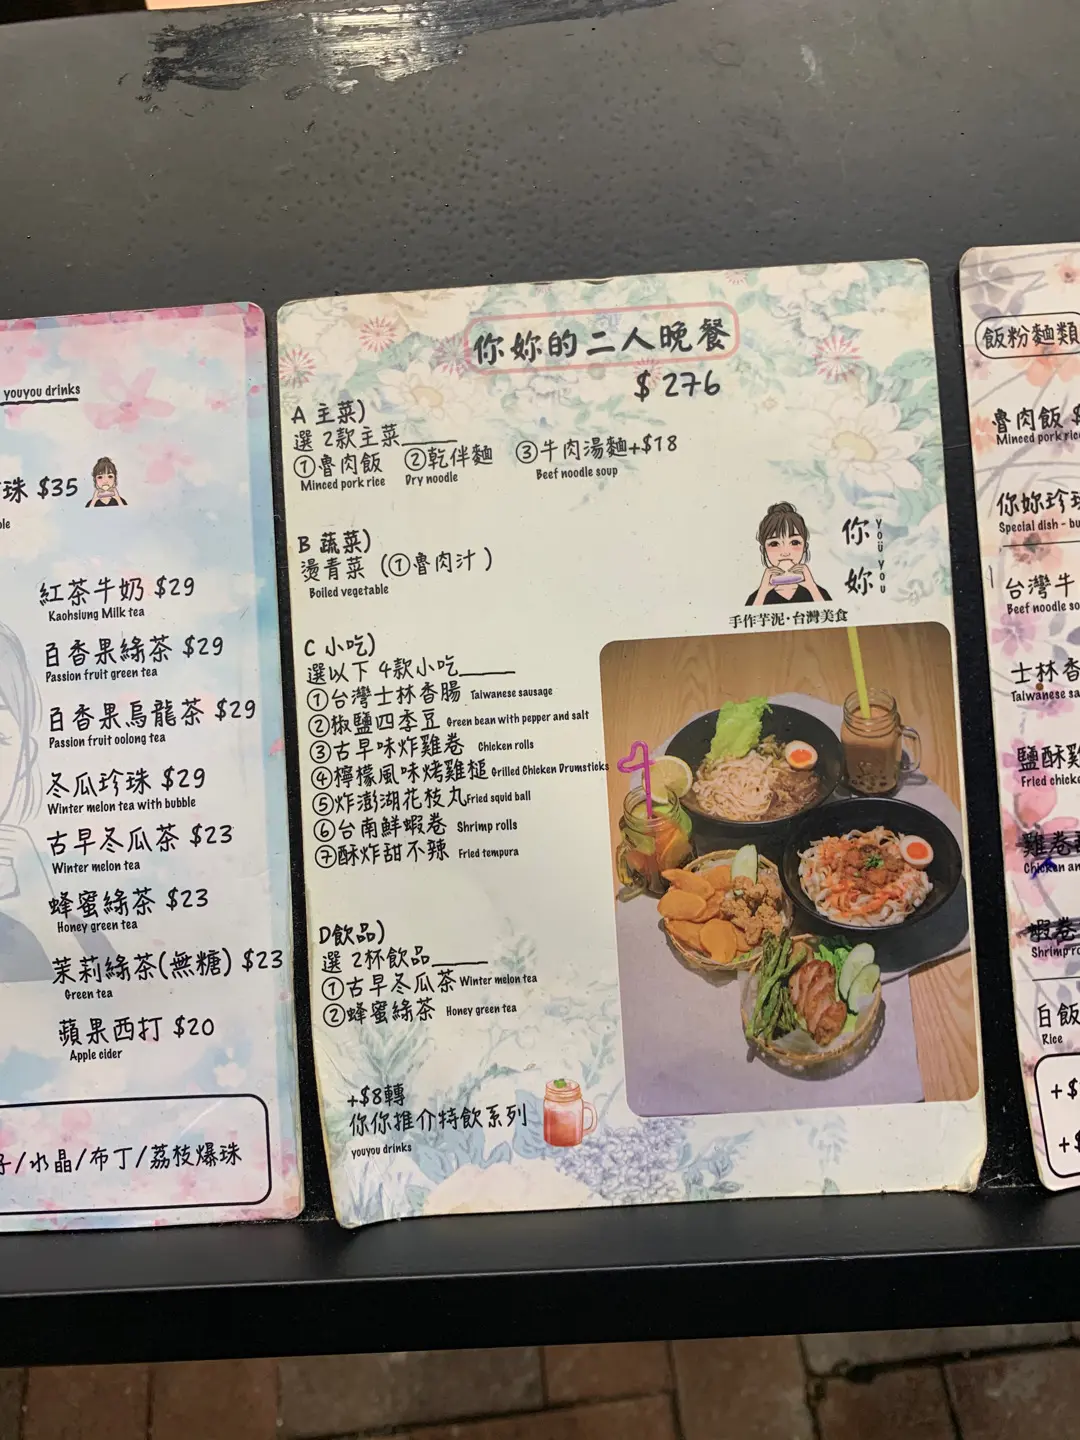 youyou drinks
珠 $35
ble
紅茶牛奶 $29
Kaohsiung Milk tea
百香果綠茶 $29
Passion fruit green tea
百香果烏龍茶 $29
Passion fruit oolong tea
冬瓜珍珠 $29
Winter melon tea with bubble
古早冬瓜茶 $23
Winter melon tea
蜂蜜綠茶 $23
Honey green tea
茉莉綠茶(無糖) $23
Green tea
蘋果西打 $20
Apple cider
/水晶/布丁/荔枝爆珠
你妳的二人晚餐
$ 276
A 主菜)
選 2款主菜____
①魯肉飯 ②乾伴麵 ③牛肉湯麵+$18
Minced pork rice Dry noodle Beef noodle soup
B 蔬菜)
燙青菜 (①魯肉汁)
Boiled vegetable
你妳
YOÜ YOU
手作芋泥·台灣美食
C 小吃)
選以下 4款小吃____
①台灣士林香腸 Taiwanese sausage
②椒鹽四季豆 Green bean with pepper and salt
③古早味炸雞卷 Chicken rolls
④檸檬風味烤雞槌 Grilled Chicken Drumsticks
⑤炸澎湖花枝丸 Fried squid ball
⑥台南鮮蝦卷 Shrimp rolls
⑦酥炸甜不辣 Fried tempura
D飲品)
選 2杯飲品____
①古早冬瓜茶 Winter melon tea
②蜂蜜綠茶 Honey green tea
+$8轉
你你推介特飲系列
youyou drinks
飯粉麵類
魯肉飯 $
Minced pork rice
你妳珍珠
Special dish - bu
台灣牛
Beef noodle so
士林香
Taiwanese sa
鹽酥雞
Fried chicke
雞卷
Chicken an
蝦卷
Shrimp ro
白飯
Rice
+$
+$